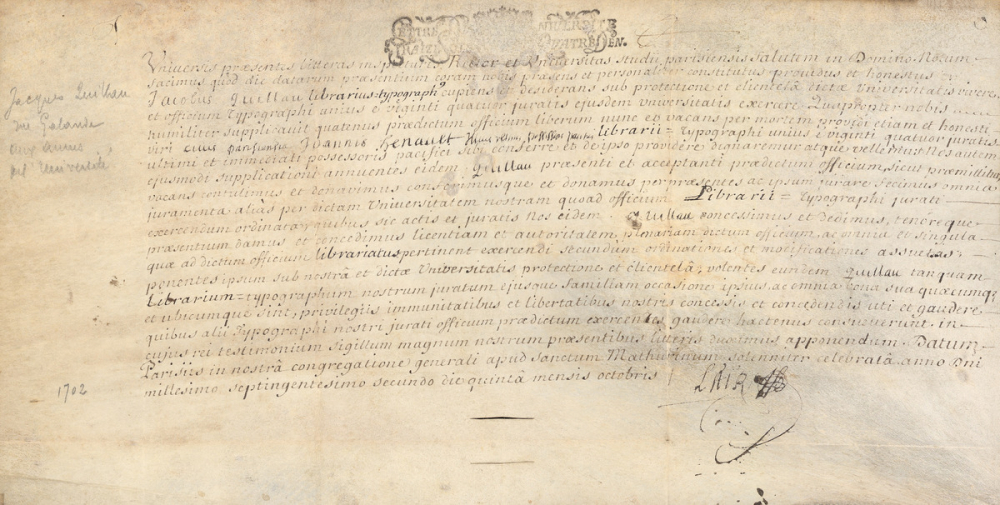 LETTRE DE L'UNIVERSITE
TRAIZE QUATRE DEN.
Universis præsentes litteras inspecturis, Rector et Universitas studii parisiensis salutem in Domino Notum
facimus quod die datarum præsentium coram nobis præsens et personaliter constitutus providus et honestus
Jacobus Quillau librarius-typographus cupiens et desiderans sub protectione et clientelâ dictæ Universitatis vivere
et officium typographi unius è viginti quatuor juratis ejusdem universitatis exercere Quapropter nobis
humiliter supplicavit quatenus prædictum officium liberum nunc et vacans per mortem providi etiam et honesti
viri civis parisiensis Joannis Henault librarii = typographi unius è viginti quatuor juratis
ultimi et immediati possessoris pacifici sibi conferre et de ipso providere dignaremur atque vellemus Nos autem
ejusmodi supplicationi annuentes eidem Quillau præsenti et acceptanti prædictum officium, sicut præmittitur
vacans contulimus et donavimus conferimusque et donamus per præsentes ac ipsum jurare fecimus omnia
juramenta aliàs per dictam Universitatem nostram quoad officium Librarii = typographi jurati
exercendum ordinata, quibus sic actis et juratis Nos eidem Quillau concessimus et dedimus, tenoreque
præsentium damus et concedimus licentiam et autoritatem plenariam dictum officium, ac omnia et singula
quæ ad dictum officium librariatus pertinent exercendi secundùm ordinationes et modificationes assuetas
ponentes ipsum sub nostrâ et dictæ Universitatis protectione et clientelâ, volentes eundem Quillau tanquam
Librarium = typographum nostrum juratum ejusque familiam occasione ipsius, ac omnia bona sua quæcumque
et ubicumque sint, privilegiis immunitatibus et libertatibus nostris concessis et concedendis uti et gaudere
quibus alii typographi nostri jurati officium prædictum exercentes gaudere hactenus consueverunt. in
cujus rei testimonium sigillum magnum nostrum præsentibus litteris duximus apponendum. Datum
Parisiis in nostrâ congregatione generali apud sanctum Mathurinum solenniter celebratâ anno Dni
millesimo septingentesimo secundo die quintâ mensis octobris
LAIR
Jacques Quillau
rue Galande
aux armes
de l'Université
1702